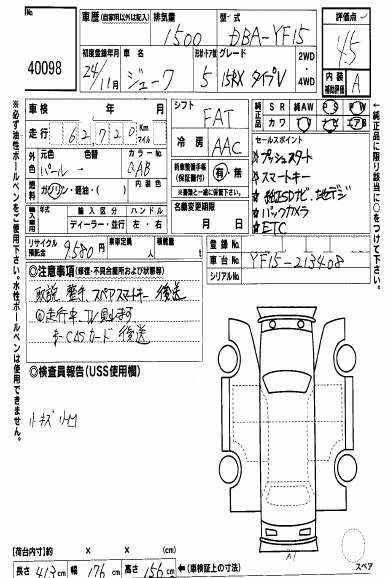 No.
40098
車歴 (自家用以外は記入)
排気量
型式
評価点
1500
DBA-YF15
4.5
初度登録年月
車名
形状・ドア数
グレード
2WD
4WD
内装 補助評価
A
24/11月
ジューク
5
15RX タイプV
車検 年 月
シフト
FAT
純正品
SR 純AW PS PW
カワ ナビ TV エアB
走行 62,720 Km マイル
冷房
AAC
セールスポイント
★プッシュスタート
★スマートキー
★純正SDナビ、地デジ
★バックカメラ
★ETC
外色
元色
色替
カラーNo.
パール
QAB
燃料
ガソリン・軽油・( )
内装色
新車整備手帳(保証書付)
有・無
※書類と一緒に保管して下さい。
輸入車
年式
輸入区分
ハンドル
ディーラー・並行
左・右
名義変更期限
月 日
リサイクル預託金
9580円
乗車定員
人
積載量
t
登録No.
車台No.
YF15-213408
シリアルNo.
◎注意事項 (修復・不具合箇所および状態等)
取説 整手 スペアスマートキー 後送
◎走行車 TV見れます
B-CASカード 後送
◎検査員報告 (USS使用欄)
A1
スペア
【荷台内寸】 約 × × (cm)
長さ 413cm 幅 176cm 高さ 156cm ←(車検証上の寸法)
※必ず油性ボールペンをご使用下さい。水性ボールペンは使用できません。
←純正品に限り該当に○をつけて下さい。